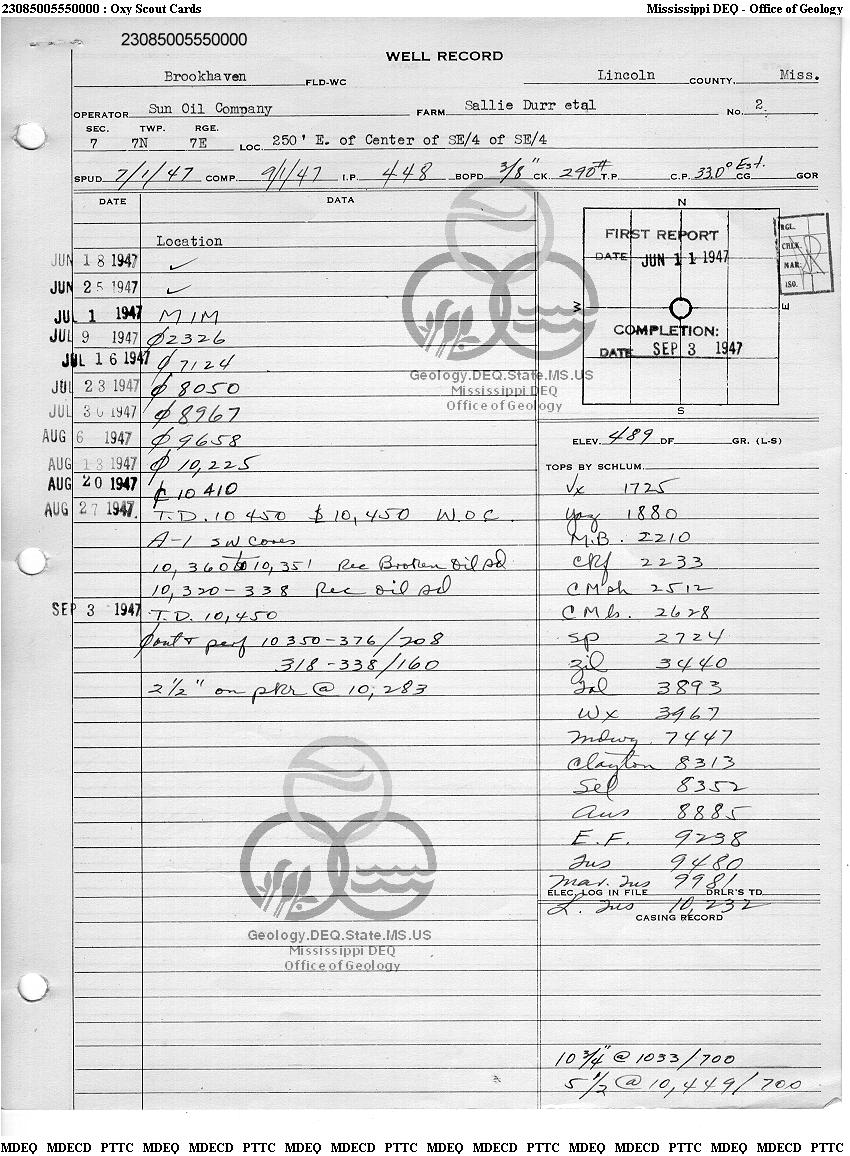 23085005550000 : Oxy Scout Cards
Mississippi DEQ - Office of Geology
23085005550000
WELL RECORD
Brookhaven FLD-WC Lincoln COUNTY, Miss.
OPERATOR Sun Oil Company FARM Sallie Durr etal No. 2
SEC. TWP. RGE.
7 7N 7E LOC. 250' E. of Center of SE/4 of SE/4
SPUD 7/1/47 COMP. 9/1/47 I.P. 448 BOPD 3/8" CK. 290# T.P. C.P. 33.0° Est. CG GOR
DATE DATA
Location
JUN 18 1947 ✓
JUN 25 1947 ✓
JUL 1 1947 MIM
JUL 9 1947 ϕ2326
JUL 16 1947 ϕ 7124
JUL 23 1947 ϕ 8050
JUL 30 1947 ϕ 8967
AUG 6 1947 ϕ 9658
AUG 13 1947 ϕ 10,225
AUG 20 1947 10410
AUG 27 1947. T.D. 10450 $ 10,450 W.O.C.
A-1 SW Cores
10,360 to 10,351 Rec Broken Oil Sd
10,320-338 Rec Oil Sd
SEP 3 1947 T.D. 10,450
perf 10350-376/208
318-338/160
2 1/2" on pkr @ 10,283
N
FIRST REPORT
DATE JUN 11 1947
W E
COMPLETION:
DATE SEP 3 1947
S
RGL.
CHLK.
MAR.
ISO.
Geology.DEQ.State.MS.US
Mississippi DEQ
Office of Geology
ELEV. 489 DF GR. (L-S)
TOPS BY SCHLUM.
Vx 1725
Yaz 1880
M.B. 2210
CKf 2233
CMsh 2512
CMls. 2628
Sp 2724
Zil 3440
Tal 3893
Wx 3967
Mdwy. 7447
Clayton 8313
Sel 8352
Aus 8885
E.F. 9238
Tus 9480
Mar. Tus 9981
ELEC. LOG IN FILE DRLR'S TD
L. Tus 10,232
CASING RECORD
10 3/4" @ 1033/700
5 1/2 @ 10,449/700
Geology.DEQ.State.MS.US
Mississippi DEQ
Office of Geology
MDEQ MDECD PTTC MDEQ MDECD PTTC MDEQ MDECD PTTC MDEQ MDECD PTTC MDEQ MDECD PTTC MDEQ MDECD PTTC